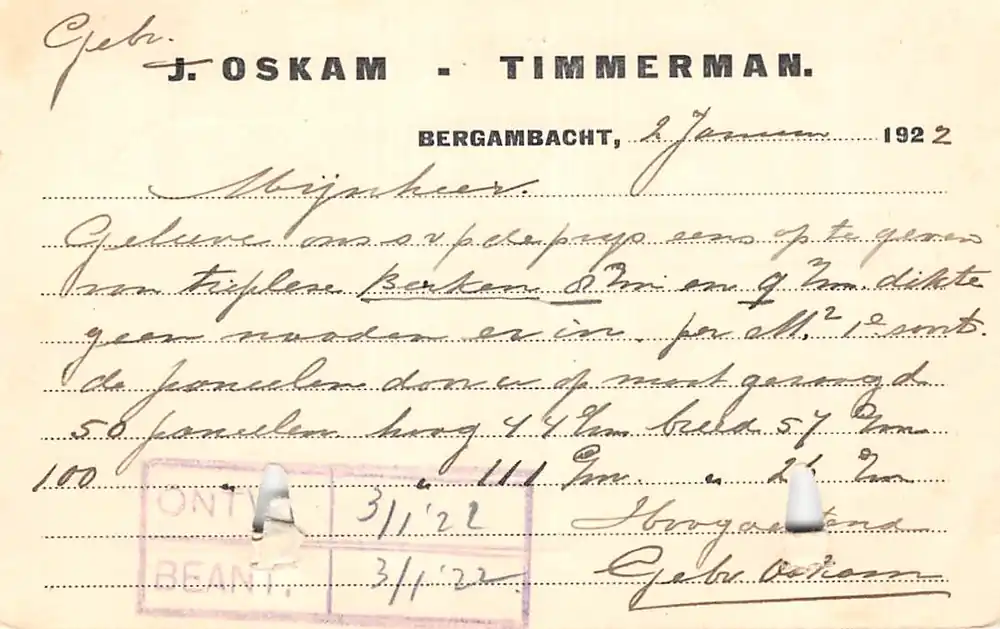 Gebr.
J. OSKAM - TIMMERMAN.
BERGAMBACHT, 2 Januari 1922
Mijnheer.
Gelieve ons s v p de prijs eens op te geven
van triplex Berken 8 m/m en 9 m/m. dikte
geen naaden er in. per M.² 1e soort.
de paneelen door u op maat gezaagd
50 paneelen hoog 44 c/m breed 57 c/m
100 " " 111 c/m. " c/m
ONTV. 3/1 '22
Hoogachtend
BEANT. 3/1 '22
Gebr Oskam